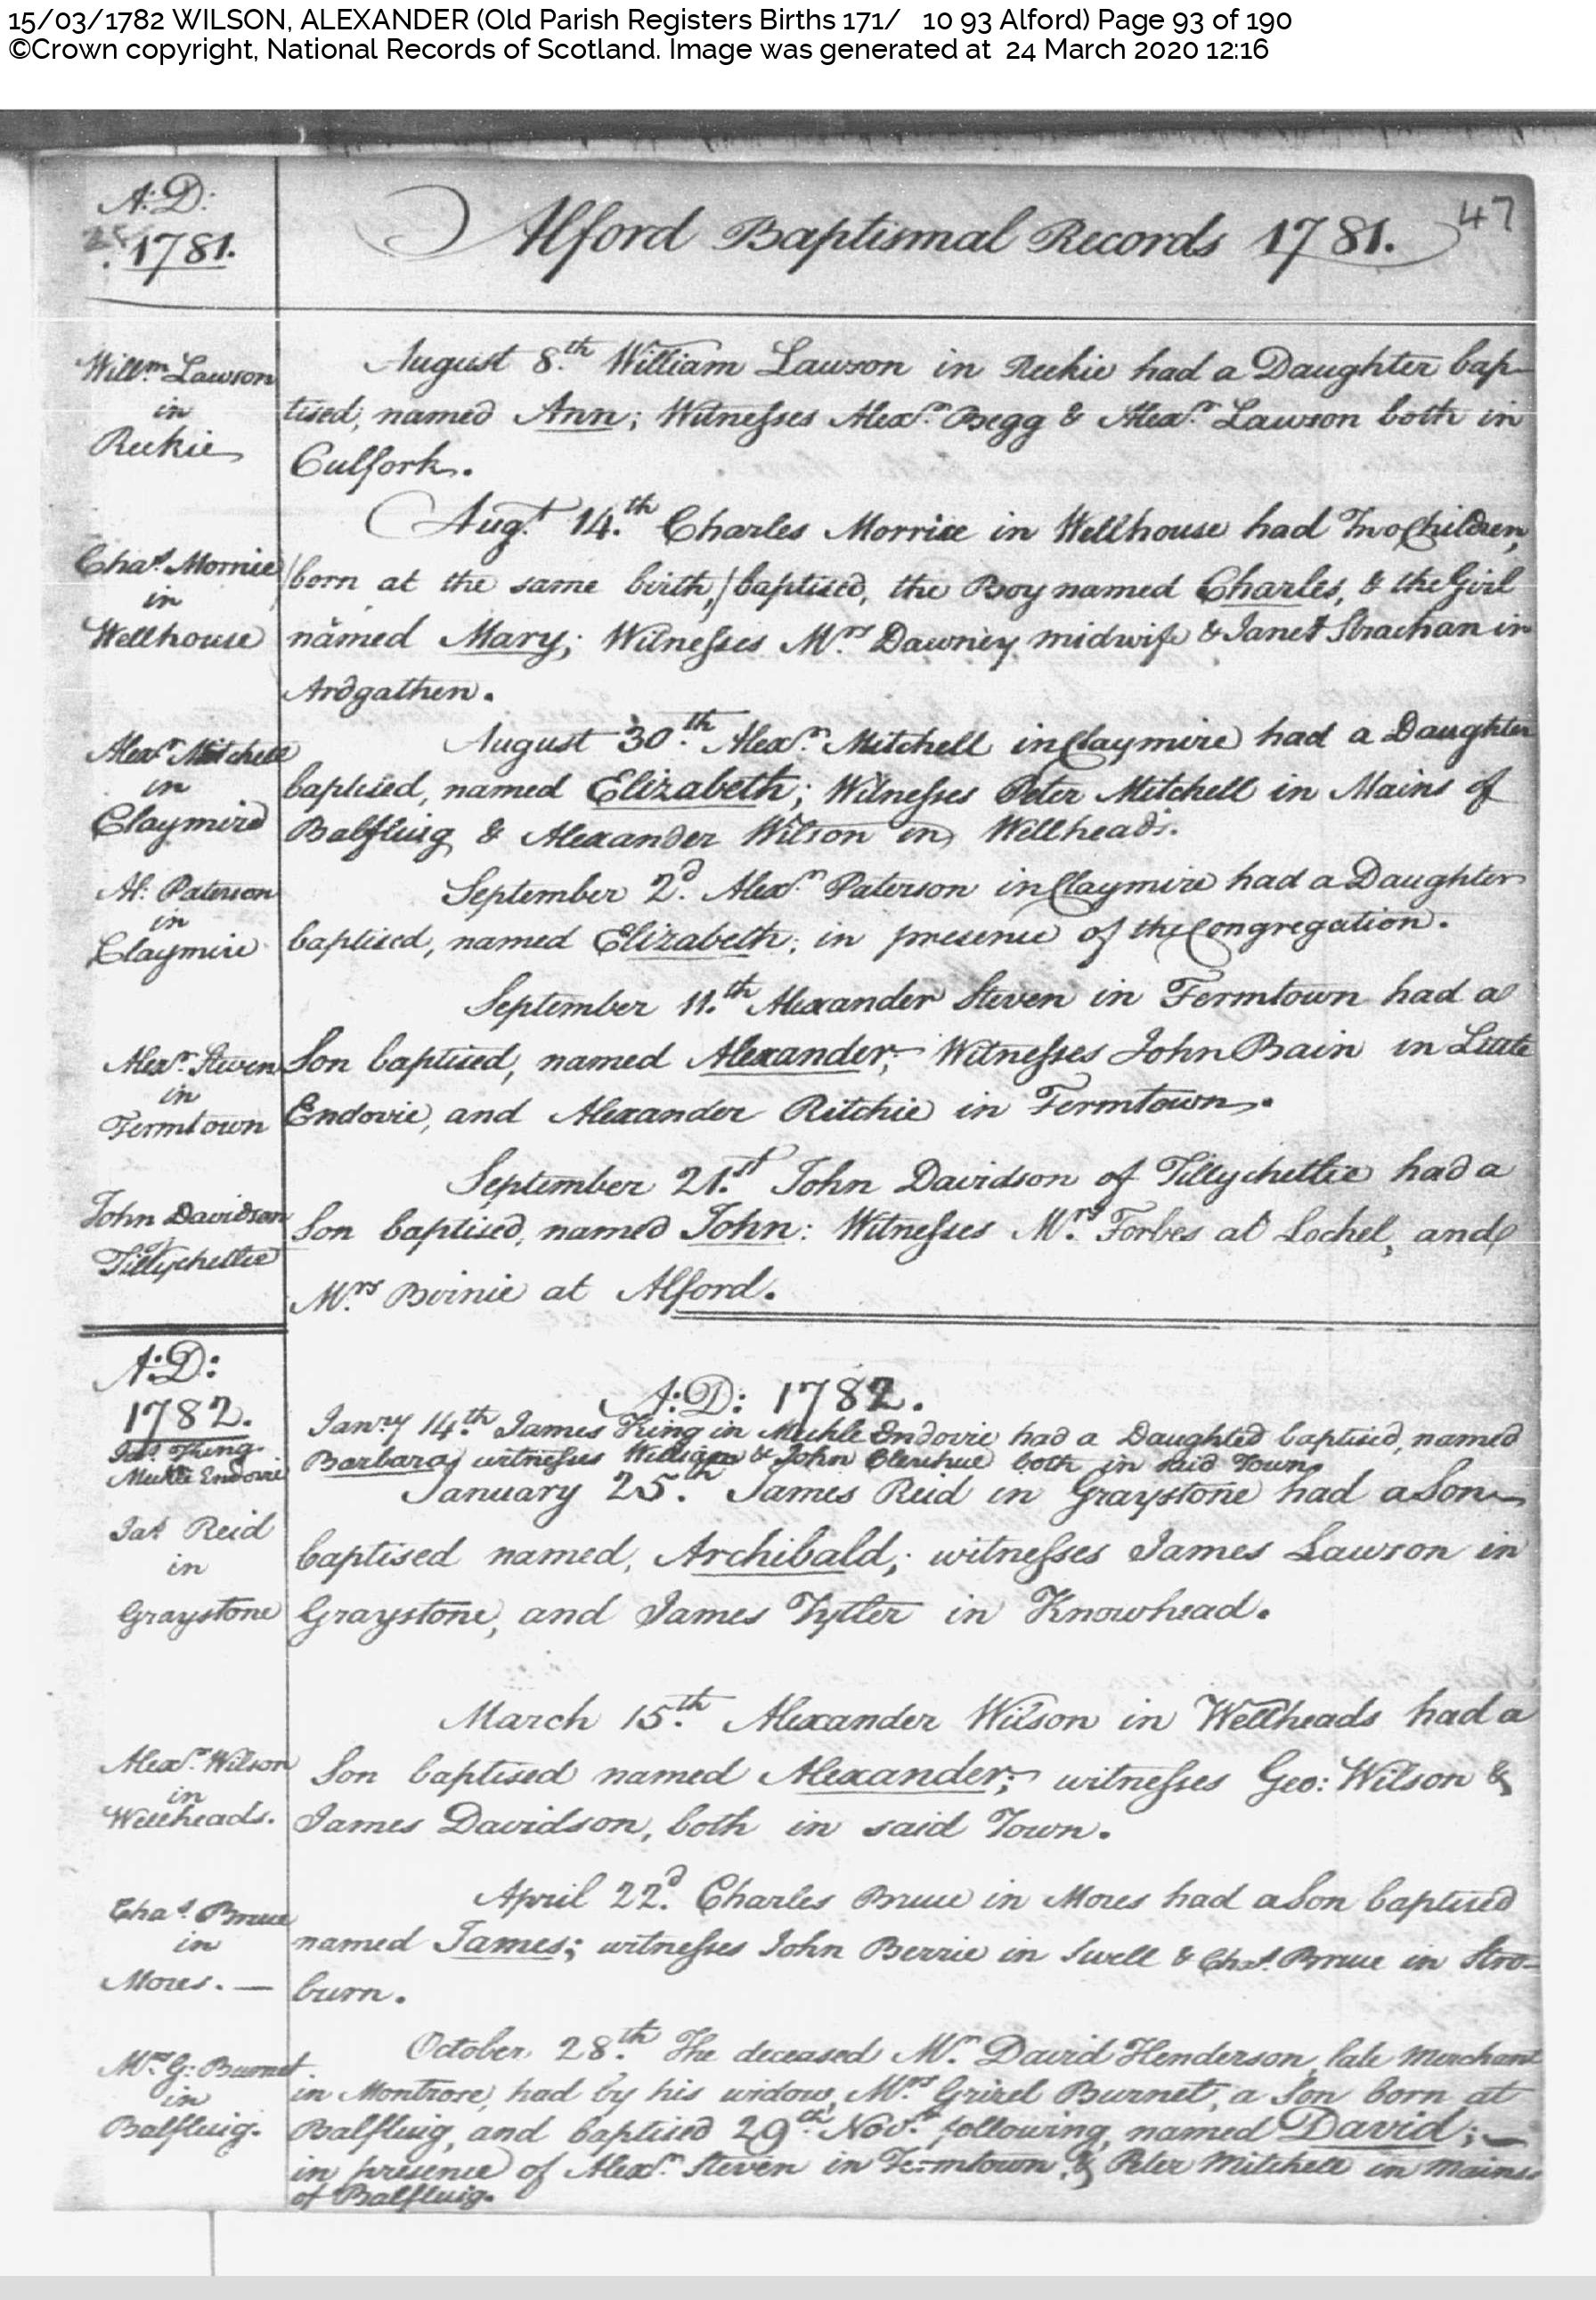 15/03/1782 WILSON, ALEXANDER (Old Parish Registers Births 171/ 10 93 Alford) Page 93 of 190
©Crown copyright, National Records of Scotland. Image was generated at 24 March 2020 12:16
A:D:
1781.
Alford Baptismal Records 1781.
47
Willm. Lawson
in
Reekie
August 8th. William Lawson in Reekie had a Daughter bap-
tised, named Ann; Witnesses Alexr. Begg & Alexr. Lawson both in
Culfork.
Chas. Morrice
in
Wellhouse
Augt. 14.th Charles Morrice in Wellhouse had Two Children,
/born at the same birth,/ baptised, the Boy named Charles, & the Girl
named Mary; Witnesses Mrs. Dawney midwife & Janet Strachan in
Ardgathen.
Alexr. Mitchell
in
Claymire
August 30.th Alexr. Mitchell in Claymire had a Daughter
baptised, named Elizabeth; Witnesses Peter Mitchell in Mains of
Balfluig & Alexander Wilson in Wellheads.
Al: Paterson
in
Claymire
September 2d. Alexr. Paterson in Claymire had a Daughter
baptised, named Elizabeth; in presence of the Congregation.
Alexr. Steven
in
Fermtown
September 11.th Alexander Steven in Fermtown had a
Son baptised, named Alexander; Witnesses John Bain in Little
Endovie, and Alexander Ritchie in Fermtown.
John Davidson
of
Tillychettie
September 21.st John Davidson of Tillychettie had a
Son baptised, named John: Witnesses Mrs. Forbes at Lochel, and
Mrs. at Alford.
A:D:
1782.
A:D: 1782.
Jas. King
Meikle Endovie
Janry 14.th James King in Meikle Endovie had a Daughted baptised, named
Barbara, witnesses William & John Clerihue both in said Town.
Jas. Reid
in
Graystone
January 25.th James Reid in Graystone had a Son
baptised named, Archibald; witnesses James Lawson in
Graystone, and James Tytler in Knowhead.
Alexr. Wilson
in
Wellheads.
March 15.th Alexander Wilson in Wellheads had a
Son baptised named Alexander; witnesses Geo: Wilson &
James Davidson, both in said Town.
Chas. Bruce
in
Mores. —
April 22d. Charles Bruce in Mores had a Son baptised
named James; witnesses John Berrie in Swell & Chas. Bruce in Stro-
burn.
Mrs. G: Burnet
in
Balfluig.
October 28.th The deceased Mr. David Henderson late Merchant
in Montrose, had by his widow, Mrs. Grizel Burnet, a Son born at
Balfluig, and baptised 29th Novr. following, named David; —
in presence of Alexr. Steven in Fermtown, & Peter Mitchell in Mains
of Balfluig.